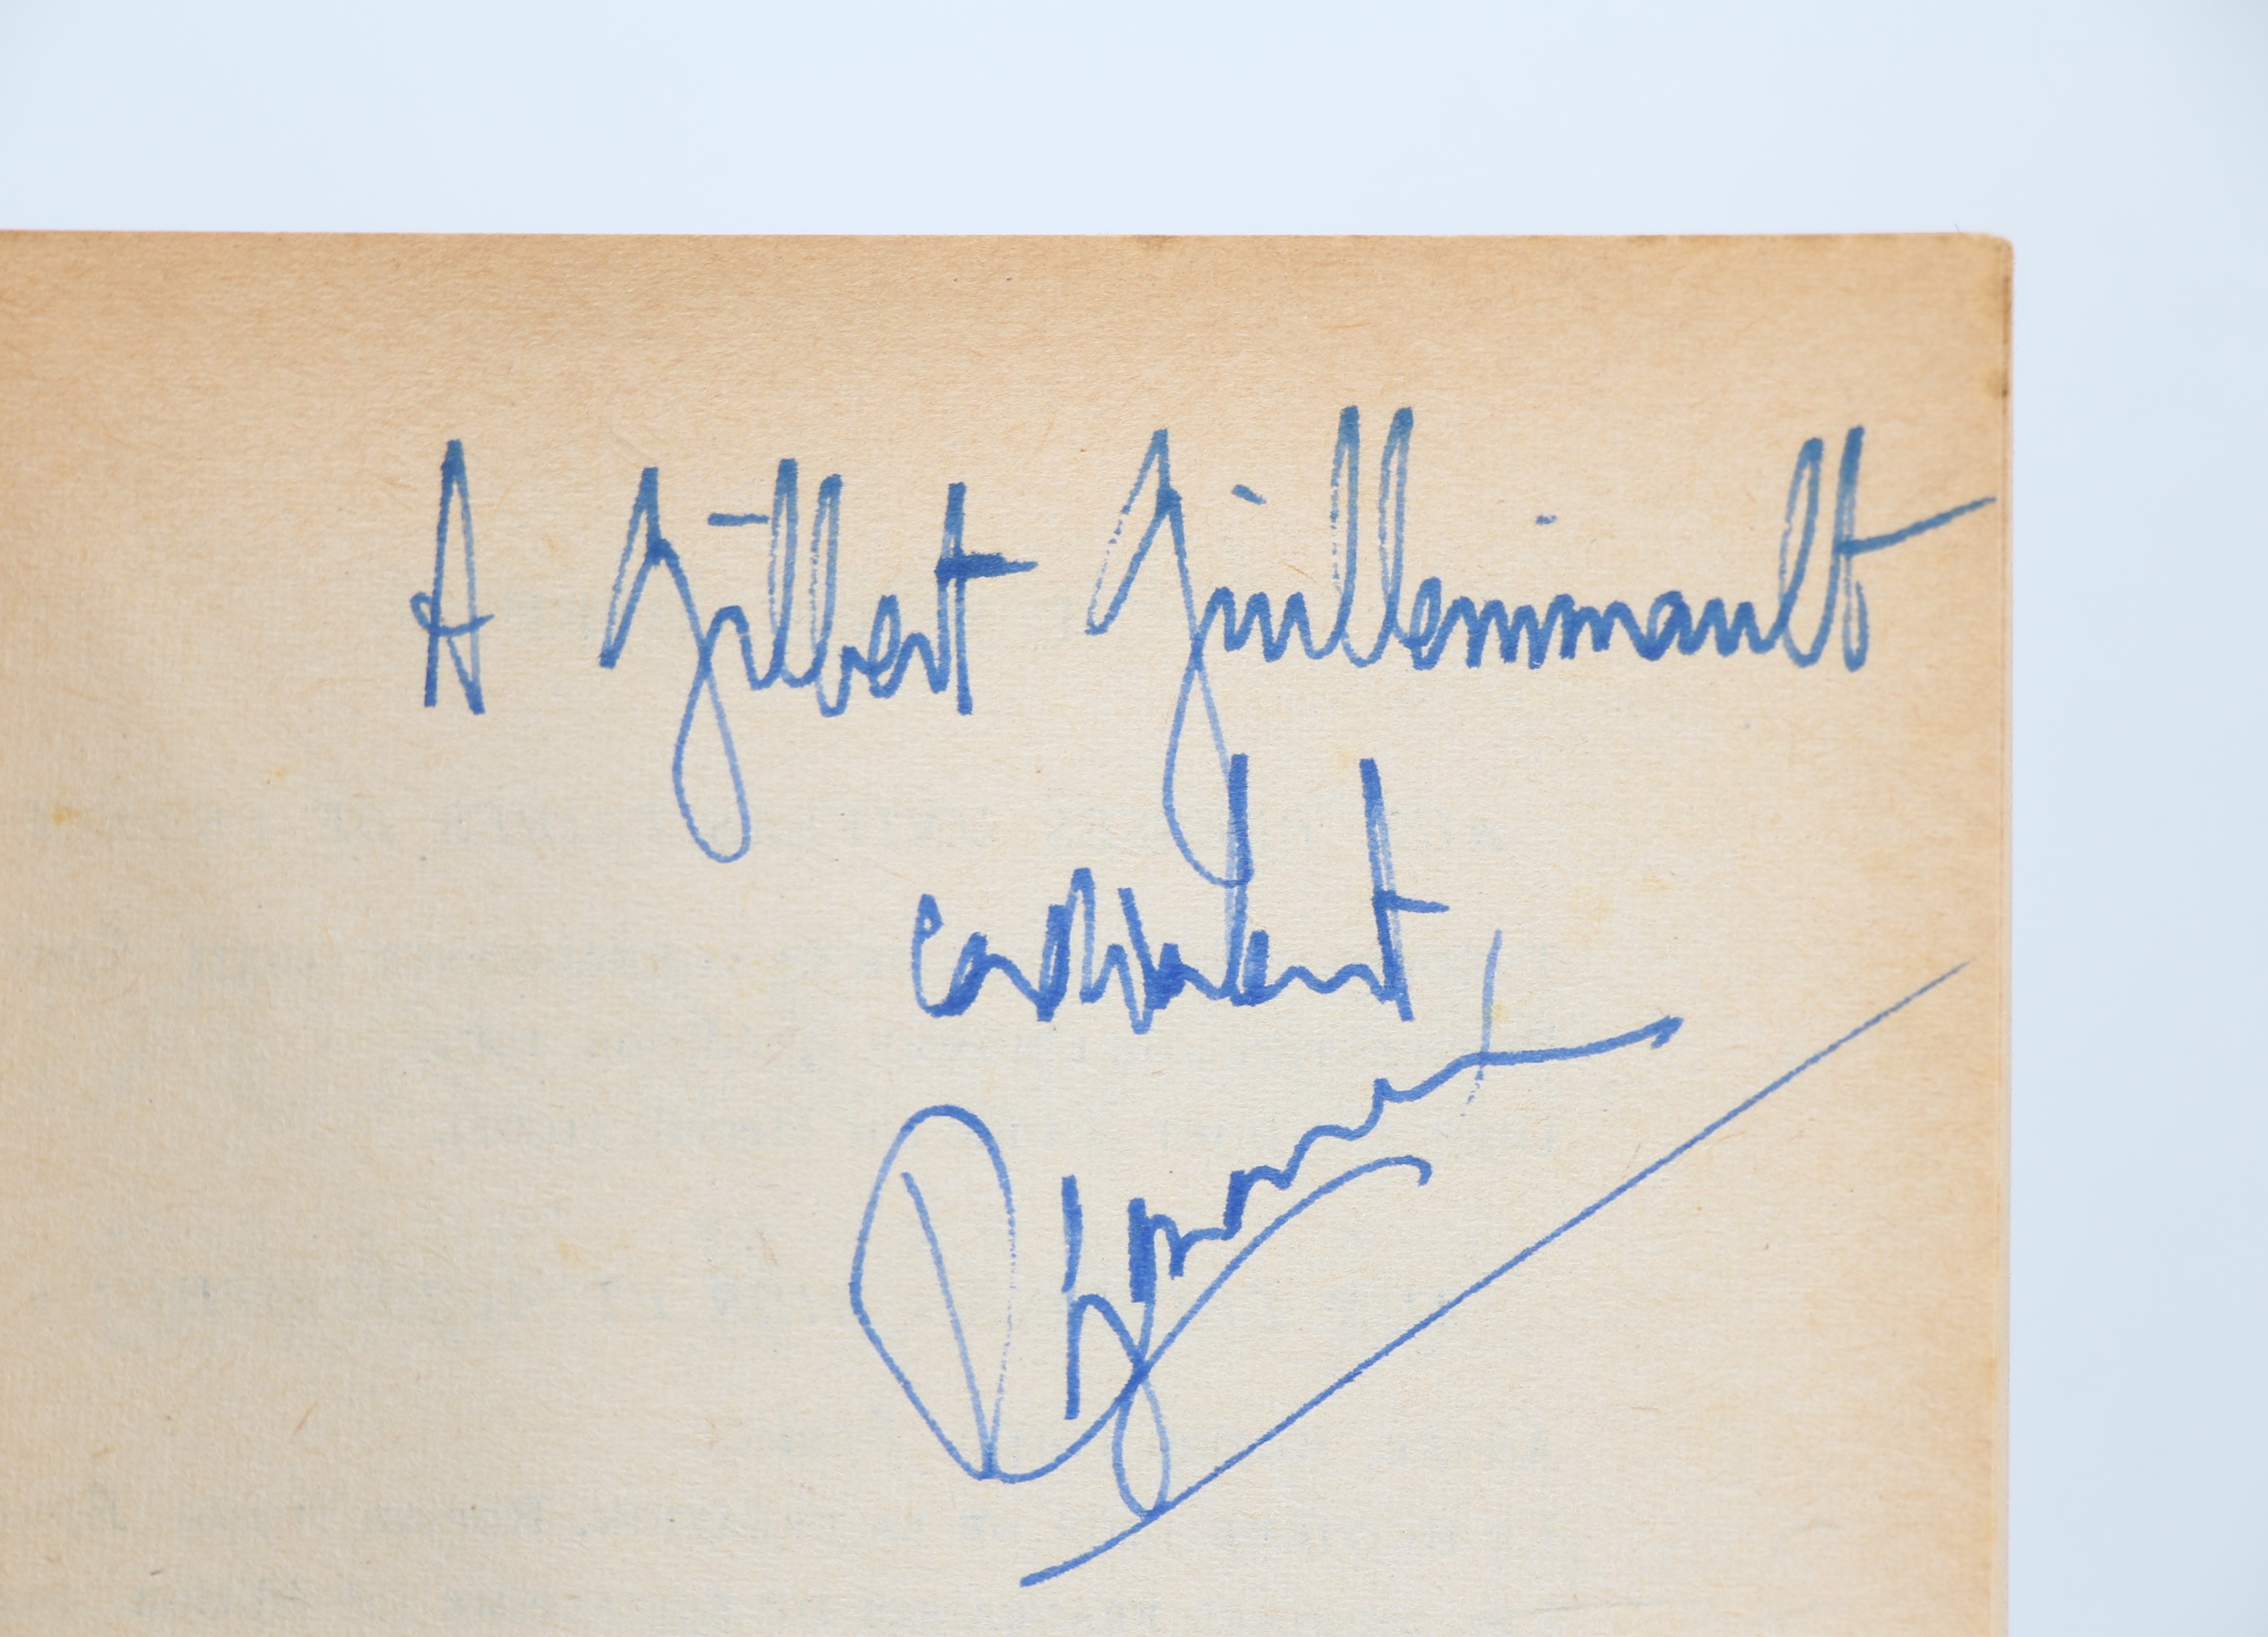 A Gilbert Guilleminault
cordialement,